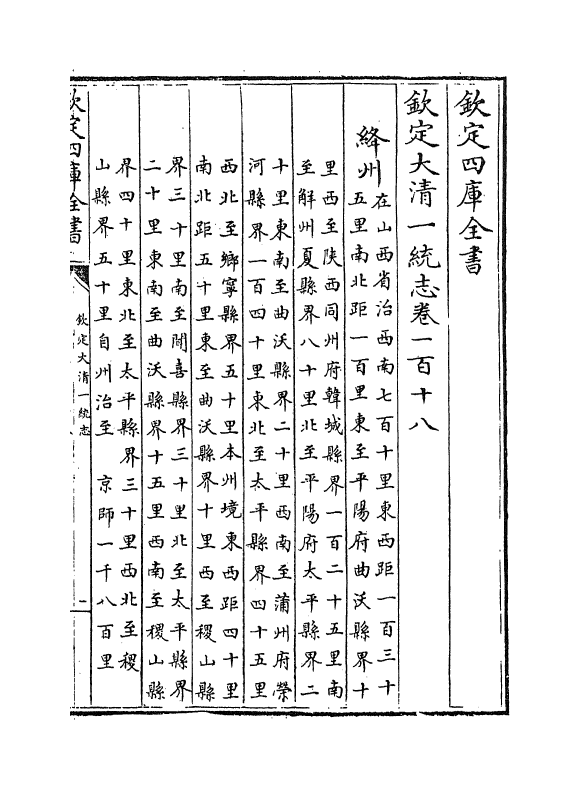 欽定四庫全書
欽定大清一統志卷一百十八
絳州
在山西省治西南七百十里東西距一百三十
五里南北距一百里東至平陽府曲沃縣界十
里西至陝西同州府韓城縣界一百二十五里南
至解州夏縣界八十里北至平陽府太平縣界二
十里東南至曲沃縣界二十里西南至蒲州府榮
河縣界一百四十里東北至太平縣界四十五里
西北至鄉寧縣界五十里本州境東西距四十里
南北距五十里東至曲沃縣界十里西至稷山縣
界三十里南至聞喜縣界三十里北至太平縣界
二十里東南至曲沃縣界十五里西南至稷山縣
界四十里東北至太平縣界三十里西北至稷
山縣界五十里自州治至 京師一千八百里
欽定四庫全書
欽定大清一統志
一